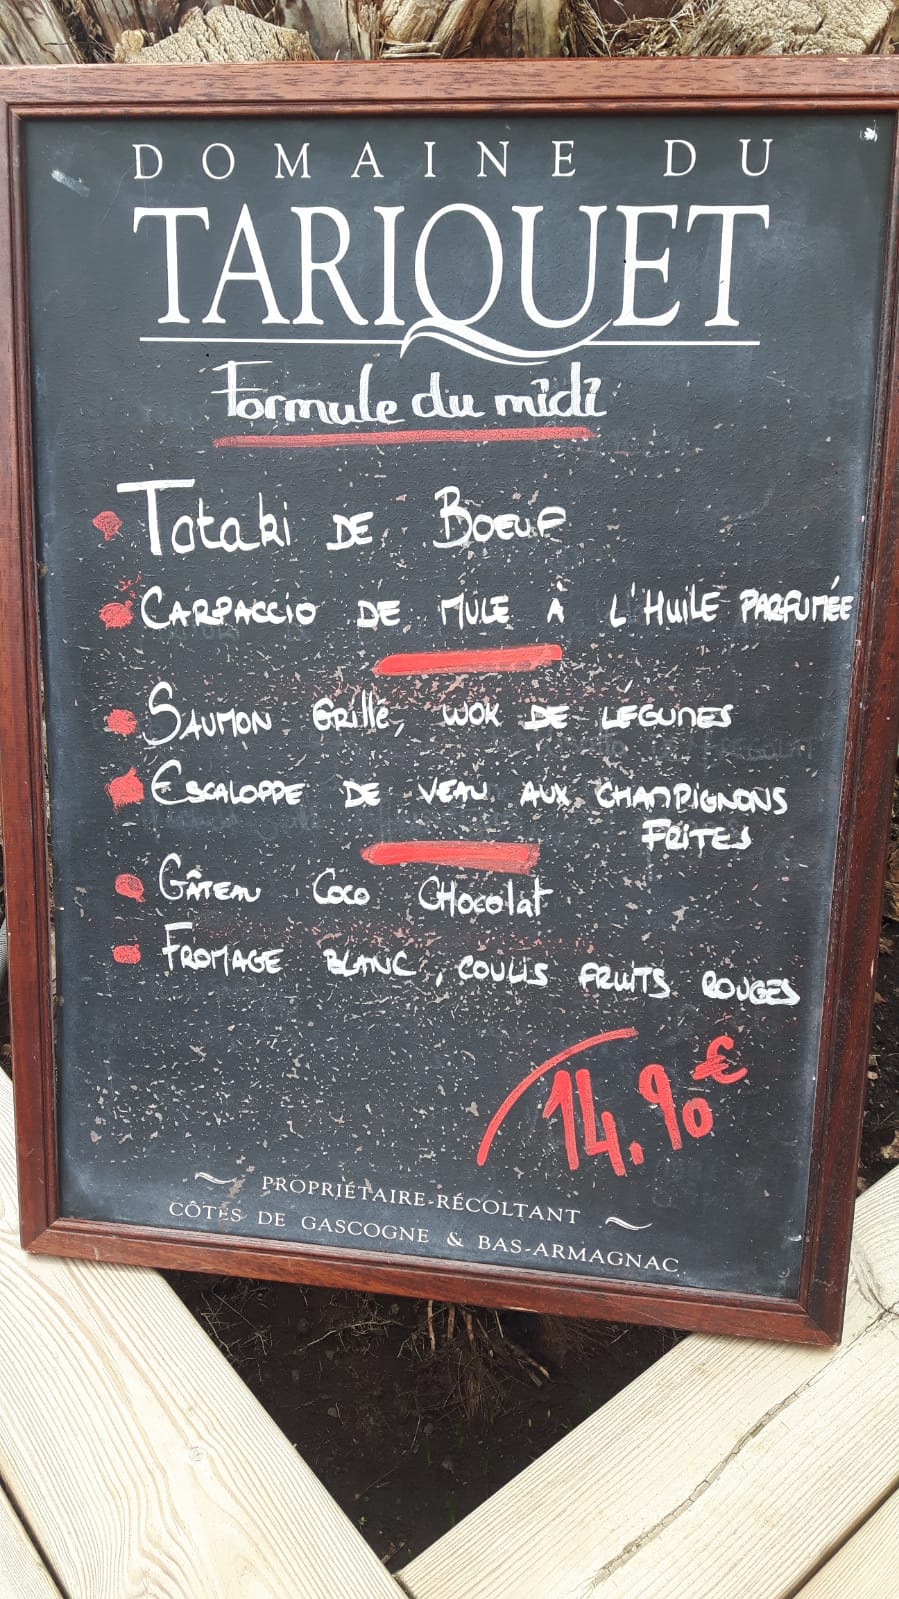 DOMAINE DU
TARIQUET
Formule du midi
Totaki DE BOEUF
CARPACCIO DE MULE À L'HUILE PARFUMÉE
SAUMON GRILLÉ, WOK DE LÉGUMES
ESCALOPPE DE VEAU AUX CHAMPIGNONS
FRITES
GÂTEAU COCO CHOCOLAT
FROMAGE BLANC, COULIS FRUITS ROUGES
14.90€
PROPRIÉTAIRE-RÉCOLTANT
CÔTES DE GASCOGNE & BAS-ARMAGNAC